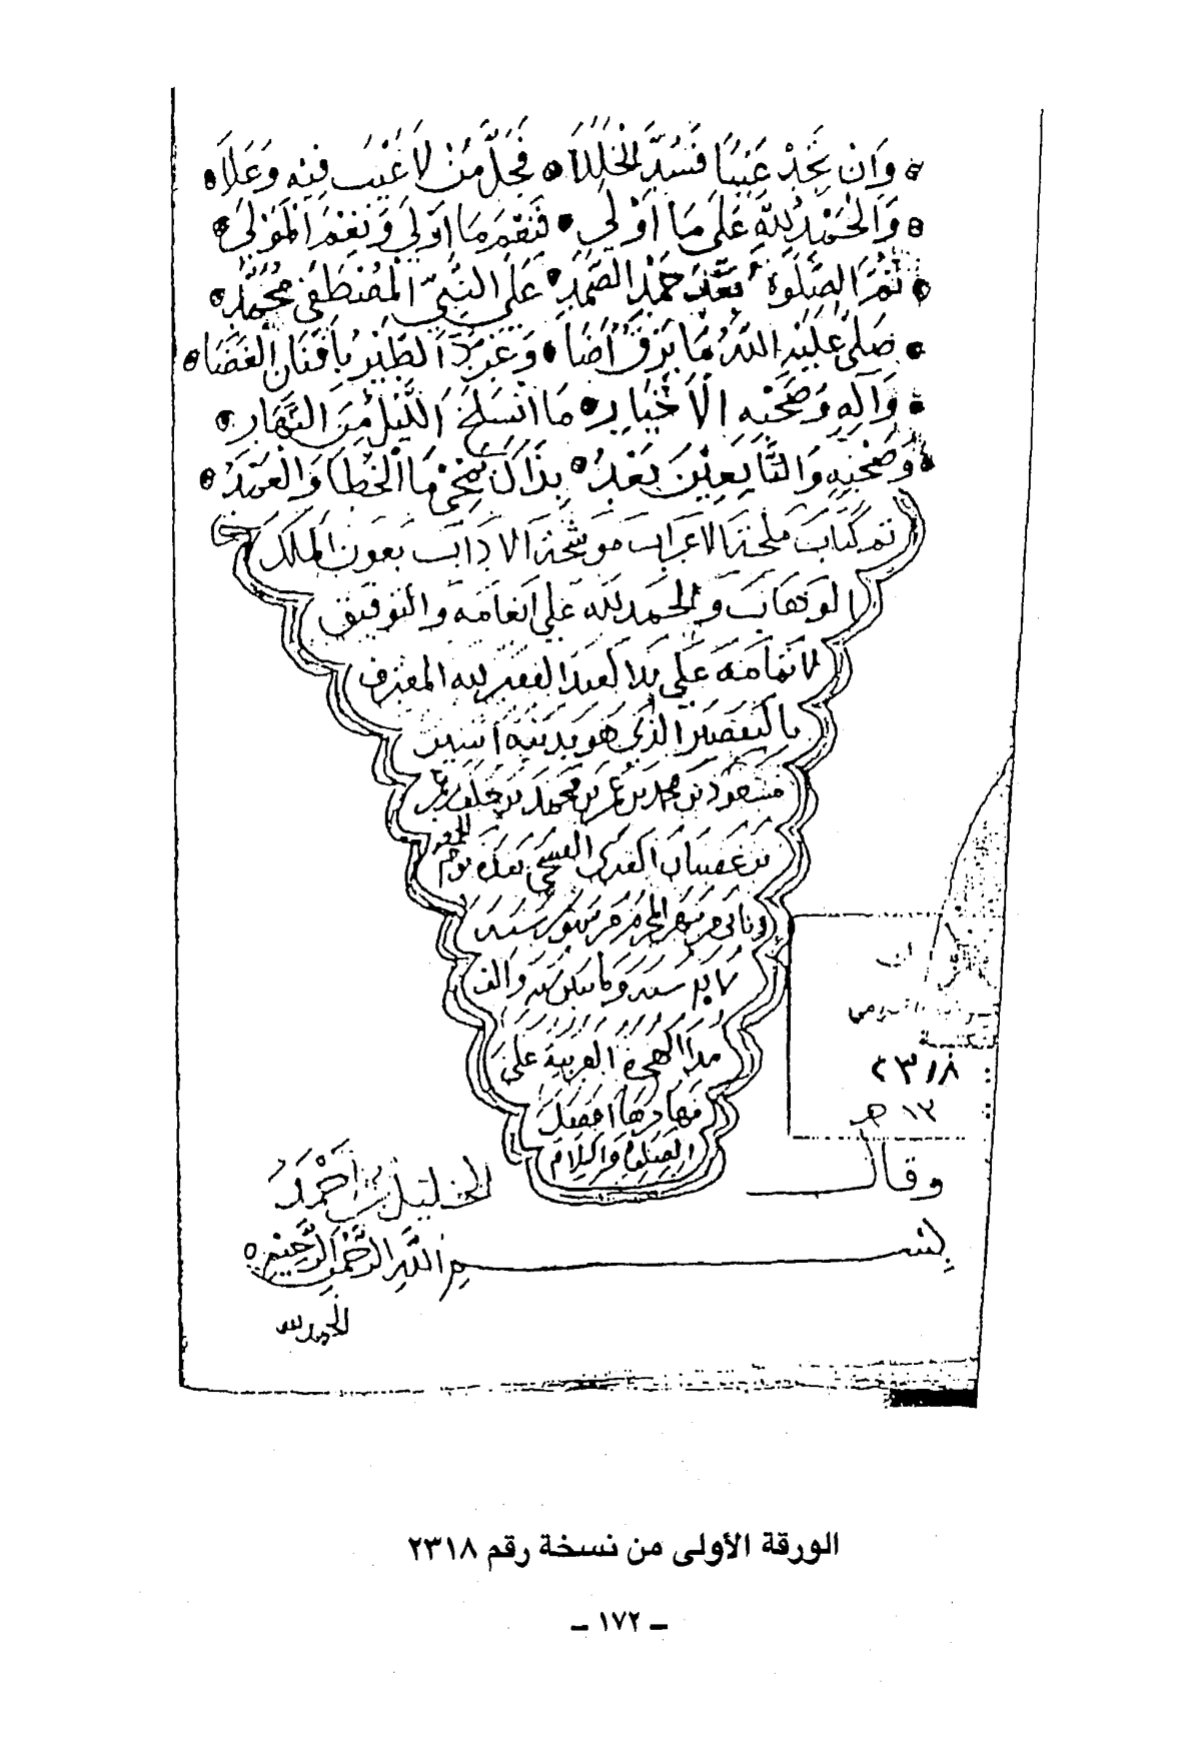 وَاِنْ تَجِدْ عَيْبًا فَسُدَّ الْخَلَلَا فَجَلَّ مَنْ لَا عَيْبَ فِيْهِ وَعَلَا
وَالْحَمْدُ لِلّٰهِ عَلَى مَا اَوْلَى فَنِعْمَ مَا اَوْلَى وَنِعْمَ الْمَوْلَى
ثُمَّ الصَّلٰوةُ بَعْدَ حَمْدِ الصَّمَدِ عَلَى النَّبِيِّ الْمُصْطَفَى مُحَمَّدِ
صَلَّى عَلَيْهِ اللّٰهُ مَا بَرْقٌ اَضَا وَغَرَّدَ الطَّيْرُ بِاَفْنَانِ الْغَضَا
وَآلِهِ وَصَحْبِهِ الْاَخْيَارِ مَا انْسَلَخَ اللَّيْلُ مِنَ النَّهَارِ
وَصَحْبِهِ وَالتَّابِعِيْنَ بَعْدُ بِذَاكَ الْخَطَا وَالْعَمْدُ
تم كتاب ملحة الاعراب موشحة الاداب بعون الملك
الوهاب والحمد لله على انعامه والتوفيق
لاتمامه على يد العبد الفقير لله المعترف
بالتقصير الذي هو بذنبه اسير
مسعود بن محمد بن عمر بن محمد بن خلف بن
بن يوم
شهر المحرم من شهور سنة
سنة والف
من الهجرة العربية على
مهاجرها افضل
الصلوة والسلام
وقال الخليل بن أَحْمَدُ
بسم اللّٰهِ الرَّحْمٰنِ الرَّحِيْمِ
الحمد لله
٢٣١٨
١٣ هـ
الورقة الأولى من نسخة رقم ٢٣١٨
ـ ١٧٢ ـ